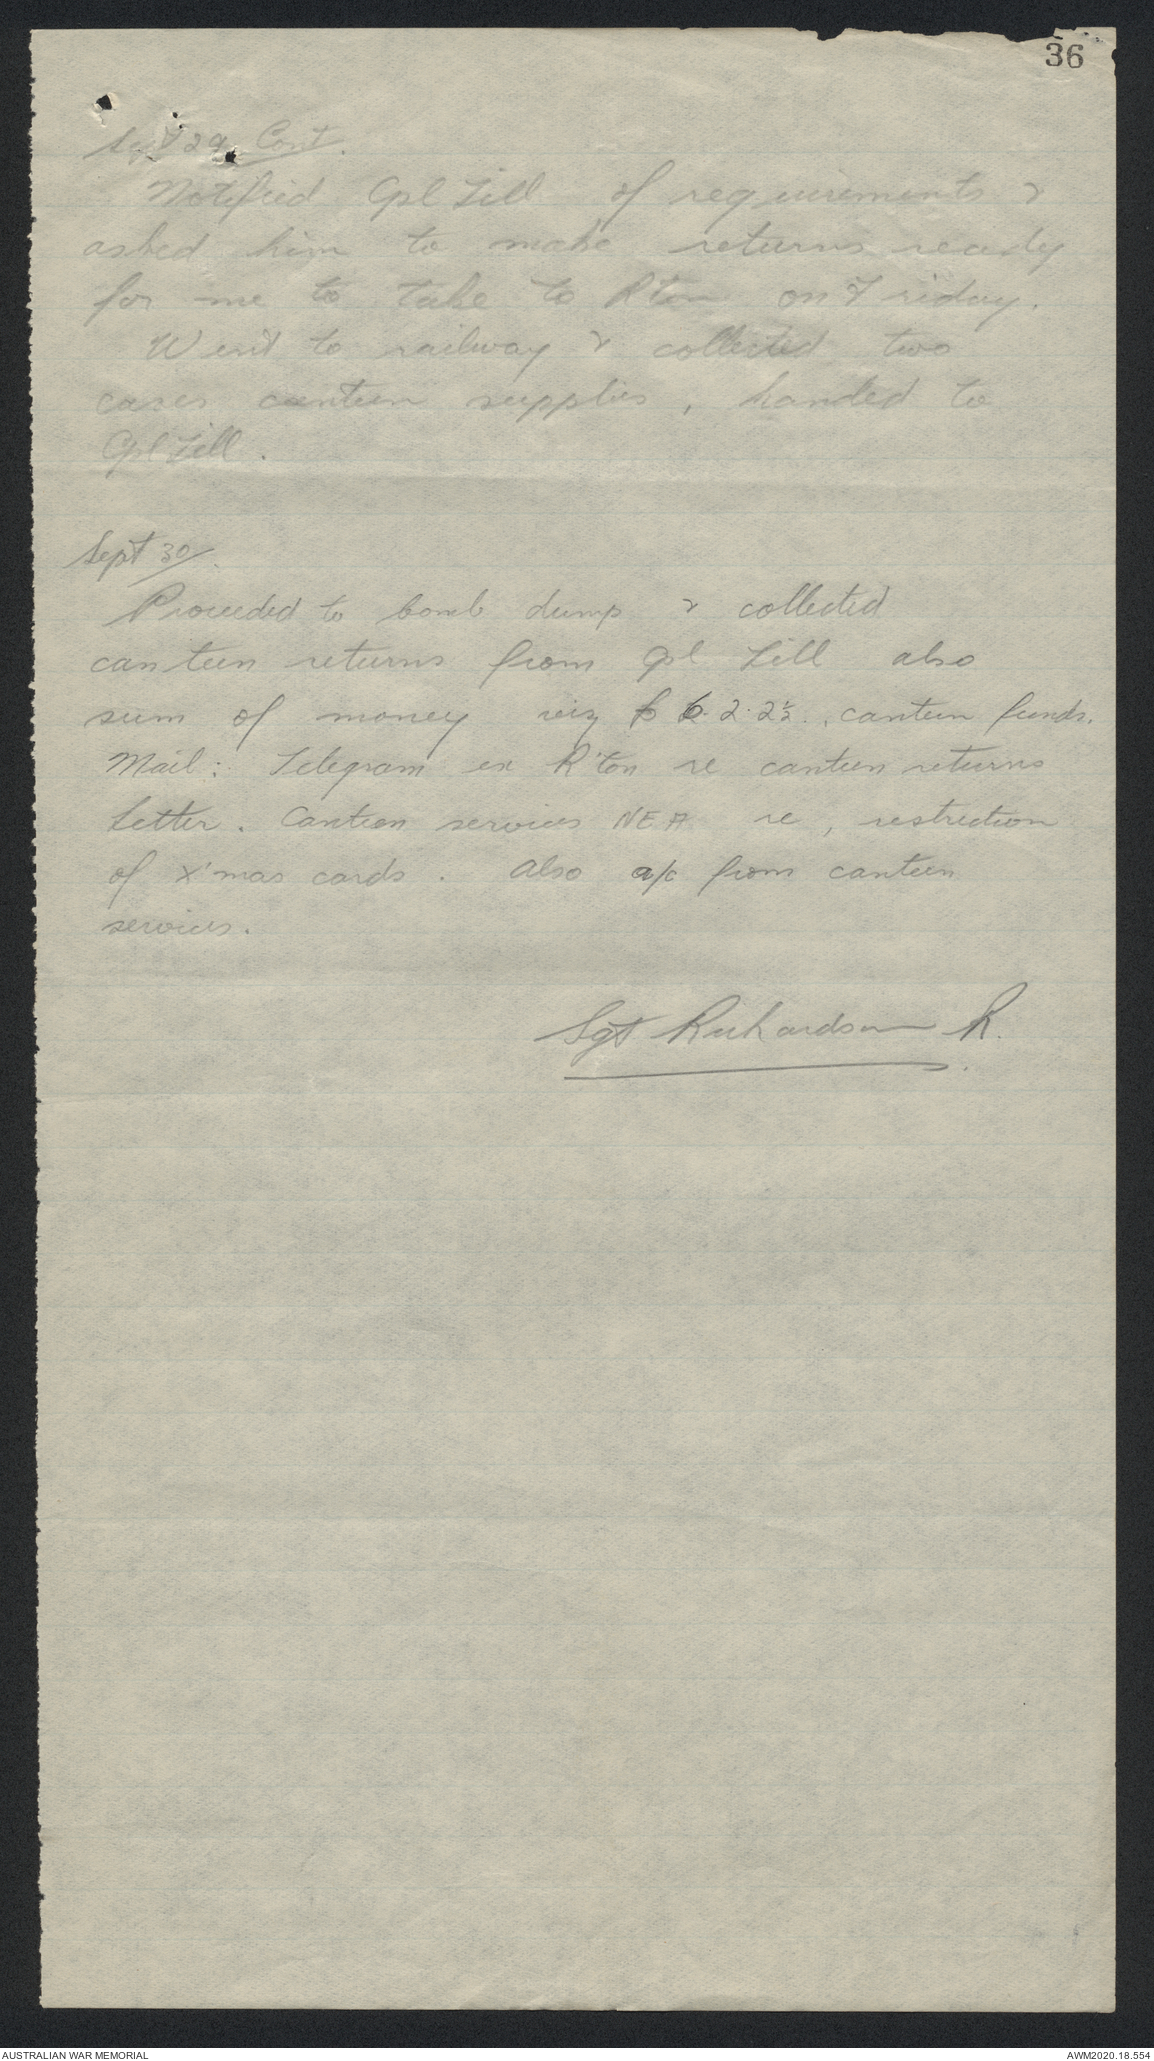 36
Sept 29 Cont.
Notified Cpl Lill of requirements &
asked him to make returns ready
for me to take to R'ton on Friday.
Went to railway & collected two
cases canteen supplies, handed to
Cpl Lill.
Sept 30/.
Proceeded to bomb dump & collected
canteen returns from Cpl Lill also
sum of money viz £ 6.2.2½., canteen funds.
Mail: Telegram ex R'ton re canteen returns
Letter. Canteen services NEA re, restriction
of X'mas cards. Also a/c from canteen
services.
Sgt Richardson R.
AUSTRALIAN WAR MEMORIAL
AWM2020.18.554